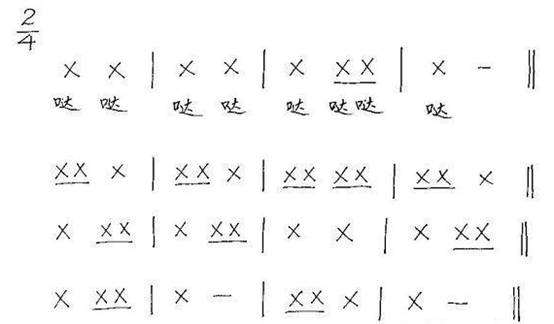 2/4
X X | X X | X X X | X - ||
哒 哒 哒 哒 哒 哒哒 哒
X X X | X X X | X X X X | X X X ||
X X X | X X X | X X | X X X ||
X X X | X - | X X X | X - ||